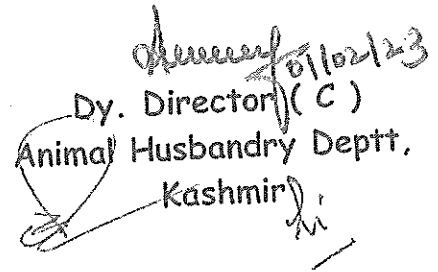 01/02/23
Dy. Director ( C )
Animal Husbandry Deptt,
Kashmir